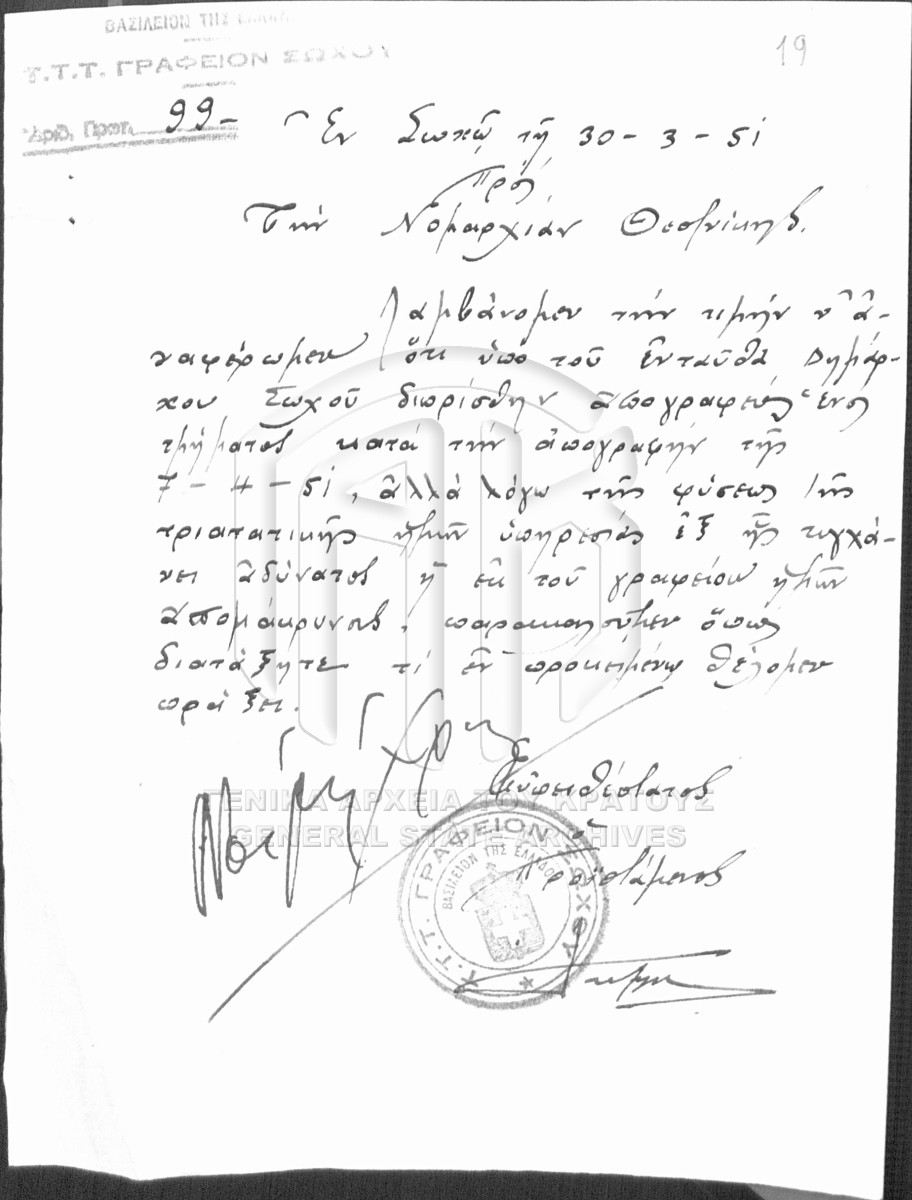 ΒΑΣΙΛΕΙΟΝ ΤΗΣ ΕΛΛΑΔΟΣ
Τ.Τ.Τ. ΓΡΑΦΕΙΟΝ ΣΩΧΟΥ
19
Ἀριθ. Πρωτ. 99-
Ἐν Σωχῷ τῇ 30-3-51
Πρός
Τὴν Νομαρχίαν Θεσ)νίκης.
Λαμβάνομεν τὴν τιμὴν ν' ἀ-
ναφέρωμεν ὅτι ὑπὸ τοῦ ἐνταῦθα Δημάρ-
χου Σωχοῦ διωρίσθην ἀπογραφεὺς ἑνὸς
τμήματος κατὰ τὴν ἀπογραφὴν τῆς
7-4-51, ἀλλὰ λόγω τῆς φύσεως τῆς
τριατατικῆς ἡμῶν ὑπηρεσίας ἐξ ἧς τυγχά-
νει ἀδύνατος ἡ ἐκ τοῦ γραφείου ἡμῶν
ἀπομάκρυνσις, παρακαλοῦμεν ὅπως
διατάξητε τί ἐν προκειμένῳ θέλομεν
πράξει.
Εὐπειθέστατος
ὁ
Προϊστάμενος
Τ.Τ.Τ. ΓΡΑΦΕΙΟΝ ΣΩΧΟΥ
ΒΑΣΙΛΕΙΟΝ ΤΗΣ ΕΛΛΑΔΟΣ
ΓΕΝΙΚΑ ΑΡΧΕΙΑ ΤΟΥ ΚΡΑΤΟΥΣ
GENERAL STATE ARCHIVES